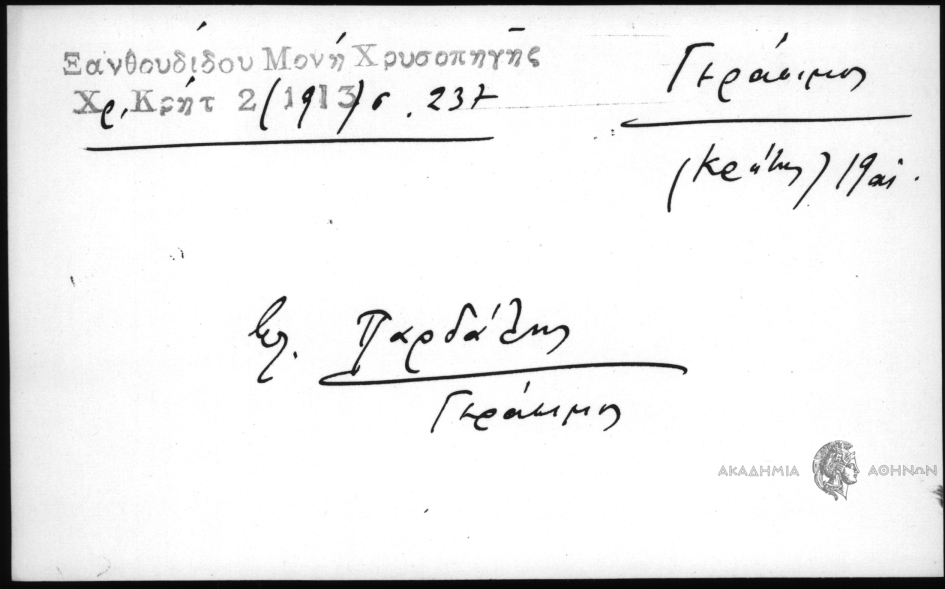 Ξανθουδίδου Μονή Χρυσοπηγῆς
Χρ. Κρήτ 2 (1913) σ. 237
Γεράσιμος
(Κρήτης) 19αι.
βλ. Παρδάλης
Γεράσιμος
ΑΚΑΔΗΜΙΑ ΑΘΗΝΩΝ